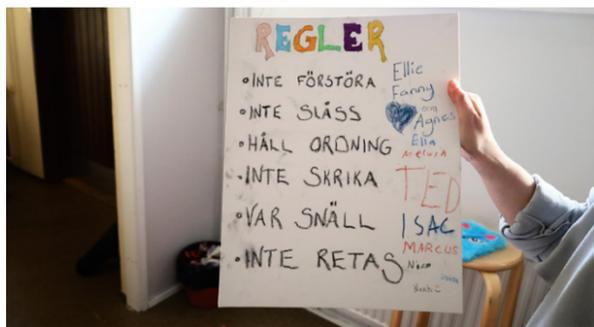 REGLER
INTE FÖRSTÖRA
INTE SLÅSS
HÅLL ORDNING
INTE SKRIKA
VAR SNÄLL
INTE RETAS
Ellie
Fanny
Agnes
Elia
Melisa
TED
ISAC
MARCUS